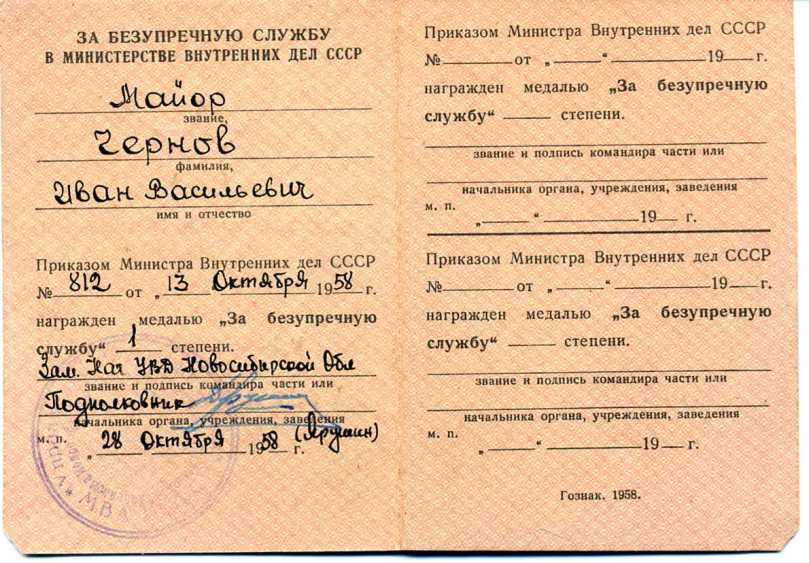 ЗА БЕЗУПРЕЧНУЮ СЛУЖБУ
В МИНИСТЕРСТВЕ ВНУТРЕННИХ ДЕЛ СССР
Майор
звание,
Чернов
фамилия,
Иван Васильевич
имя и отчество
Приказом Министра Внутренних дел СССР
№ 812 от „ 13 Октября 1958 г.
награжден медалью „За безупречную
службу“ 1 степени.
Зам. Нач УВД Новосибирской Обл
звание и подпись командира части или
Подполковник
начальника органа, учреждения, заведения
м. п. „ 28 Октября 1958 г. (Ярушин)
МВД
Приказом Министра Внутренних дел СССР
№ от „ “ 19 г.
награжден медалью „За безупречную
службу“ степени.
звание и подпись командира части или
начальника органа, учреждения, заведения
м. п.
„ “ 19 г.
Приказом Министра Внутренних дел СССР
№ от „ “ 19 г.
награжден медалью „За безупречную
службу“ степени.
звание и подпись командира части или
начальника органа, учреждения, заведения
м. п.
„ “ 19 г.
Гознак. 1958.